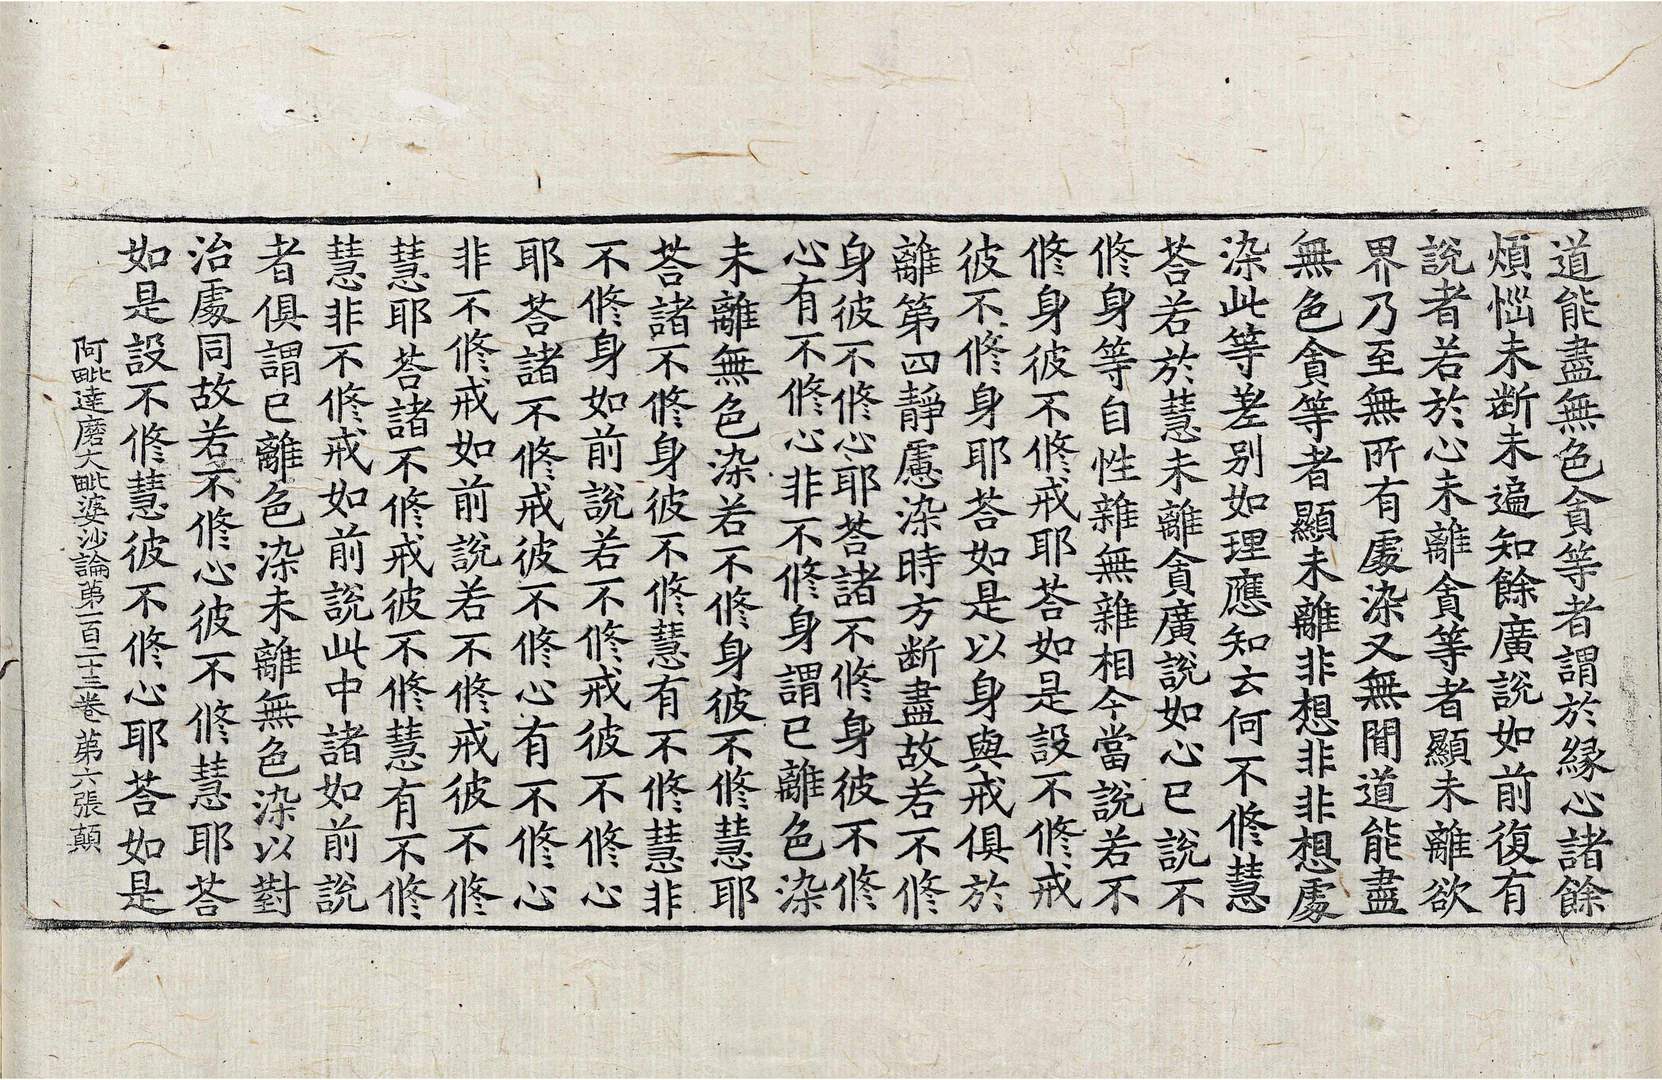 道能盡無色貪等者謂於緣心諸餘
煩惱未斷未遍知餘廣說如前復有
說者若於心未離貪等者顯未離欲
界乃至無所有處染又無間道能盡
無色貪等者顯未離非想非非想處
染此等差別如理應知云何不修慧
荅若於慧未離貪廣說如心已說不
修身等自性雜無雜相今當說若不
修身彼不修戒耶荅如是設不修戒
彼不修身耶荅如是以身與戒俱於
離第四靜慮染時方斷盡故若不修
身彼不修心耶荅諸不修身彼不修
心有不修心非不修身謂已離色染
未離無色染若不修身彼不修慧耶
荅諸不修身彼不修慧有不修慧非
不修身如前說若不修戒彼不修心
耶荅諸不修戒彼不修心有不修心
非不修戒如前說若不修戒彼不修
慧耶荅諸不修戒彼不修慧有不修
慧非不修戒如前說此中諸如前說
者俱謂已離色染未離無色染以對
治處同故若不修心彼不修慧耶荅
如是設不修慧彼不修心耶荅如是
阿毗達磨大毗婆沙論第一百二十三卷 第六張 顛